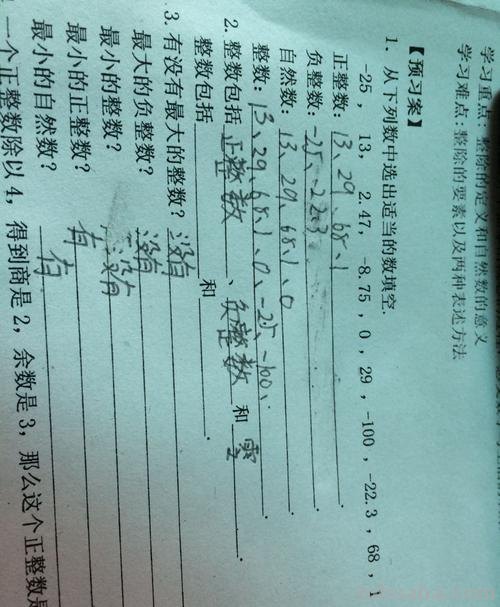 学习重点：整除的定义和自然数的意义
学习难点：整除的要素以及两种表述方法
【预习案】
1. 从下列数中选出适当的数填空.
-25， 13， 2.47， -8.75，0，29，-100，-22.3，68，1
正整数：13、29、68、1.
负整数：-25、-22.3.
自然数：13、29、68、1、0.
整数：13、29、68、1、0、-25、-100、.
2. 整数包括正整数、负整数和零.
整数包括 和 .
3. 有没有最大的整数？没有
最大的负整数？没有
最小的整数？没有
最小的正整数？有
最小的自然数？有
一个正整数除以4，得到商是2，余数是3，那么这个正整数是